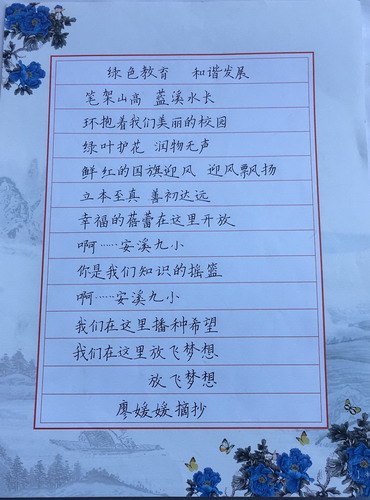 绿色教育 和谐发展
笔架山高 蓝溪水长
环抱着我们美丽的校园
绿叶护花 润物无声
鲜红的国旗迎风 迎风飘扬
立本至真 善初达远
幸福的蓓蕾在这里开放
啊……安溪九小
你是我们知识的摇篮
啊……安溪九小
我们在这里播种希望
我们在这里放飞梦想
放飞梦想
廖媛媛摘抄